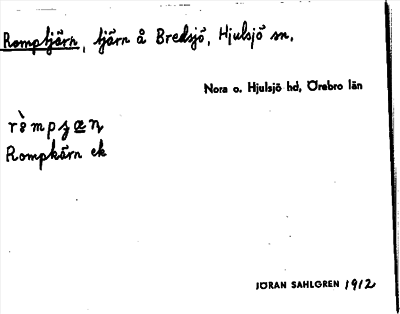 Romptjärn, tjärn å Bredsjö, Hjulsjö sn.
Nora o. Hjulsjö hd, Örebro län
Rompkärn ek
JÖRAN SAHLGREN 1912